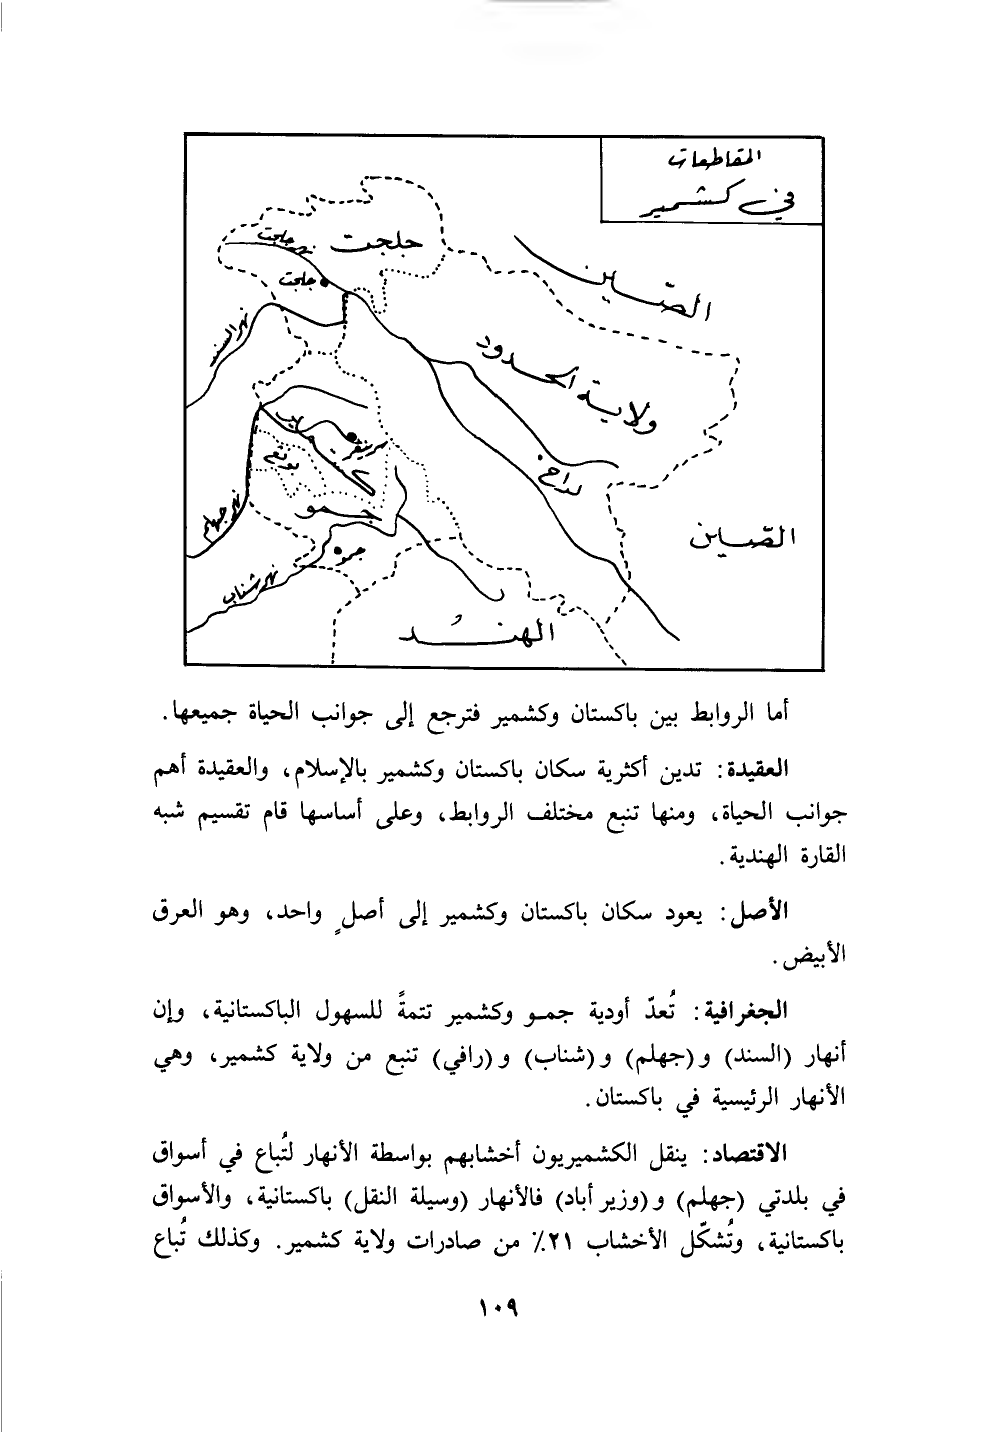 المقاطعات
في كشمير
الصّين
جلجت
نهر جلجت
جلجت
نهر السند
ولاية الحدود
لداخ
سرينغر
بونغ
جمو
نهر جهلم
جمو
نهر شناب
الصّين
الهند
أما الروابط بين باكستان وكشمير فترجع إلى جوانب الحياة جميعها.
العقيدة: تدين أكثرية سكان باكستان وكشمير بالإسلام، والعقيدة أهم
جوانب الحياة، ومنها تنبع مختلف الروابط، وعلى أساسها قام تقسيم شبه
القارة الهندية.
الأصل: يعود سكان باكستان وكشمير إلى أصلٍ واحد، وهو العرق
الأبيض.
الجغرافية: تُعدّ أودية جمو وكشمير تتمةً للسهول الباكستانية، وإن
أنهار (السند) و(جهلم) و(شناب) و(رافي) تنبع من ولاية كشمير، وهي
الأنهار الرئيسية في باكستان.
الاقتصاد: ينقل الكشميريون أخشابهم بواسطة الأنهار لتُباع في أسواق
في بلدتي (جهلم) و(وزير أباد) فالأنهار (وسيلة النقل) باكستانية، والأسواق
باكستانية، وتُشكّل الأخشاب ٢١٪ من صادرات ولاية كشمير. وكذلك تُباع
١٠٩